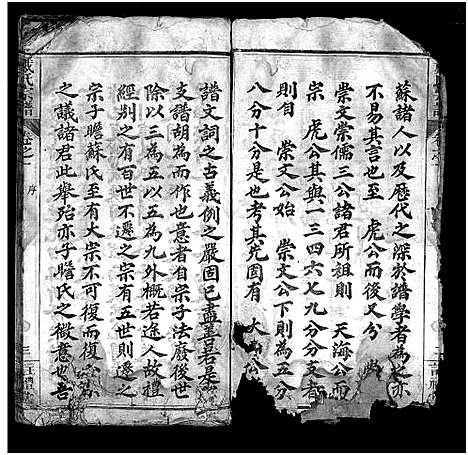 蘇諸人以及歷代之深於譜學者為之亦
不易其言也至 虎公而後又分
崇文崇儒三公諸君所祖則 天海公而
宗 虎公其與一三四六七九分分支者
則自 崇文公始 崇文公下則為五分
八分十分是也考其先固有 大
譜文詞之古義例之嚴固已盡善若是
支譜胡為而作也意者自宗子法廢後世
除以三為五以五為九外概若途人故禮
經別之有百世不遷之宗有五世則遷之
宗子瞻蘇氏至有大宗不可復而復
之議諸君此舉殆亦子瞻氏之微意也吾
序
三